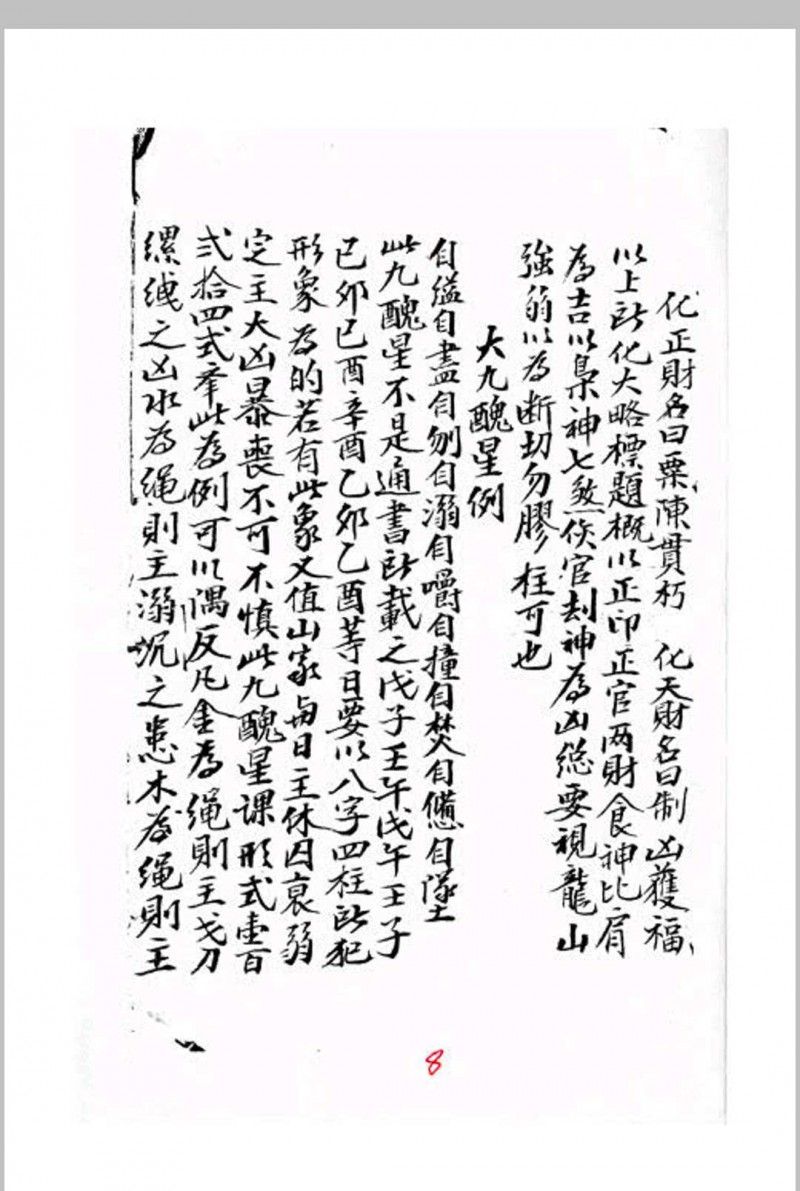 化正財名曰粟陳貫朽　化天財名曰制凶獲福
以上所化大略標題概以正印正官两財食神比肩
為吉以梟神七煞傷官刦神為凶總要視龍山
強弱以為断切勿膠柱可也
大九醜星例
自縊自盡自刎自溺自嚼自撞自焚自自墜
此九醜星不是通書所載之戊子壬午戊午壬子
已卯已酉辛酉乙卯乙酉等日要以八字四柱所犯
形象為的若有此象又值山家與日主休囚衰弱
定主大凶暴喪不可不慎此九醜星課形式壹百
弍拾四式举此為例可以隅反凡金為绳則主戈刀
縲绁之凶水為绳則主溺沉之患木為绳則主
8